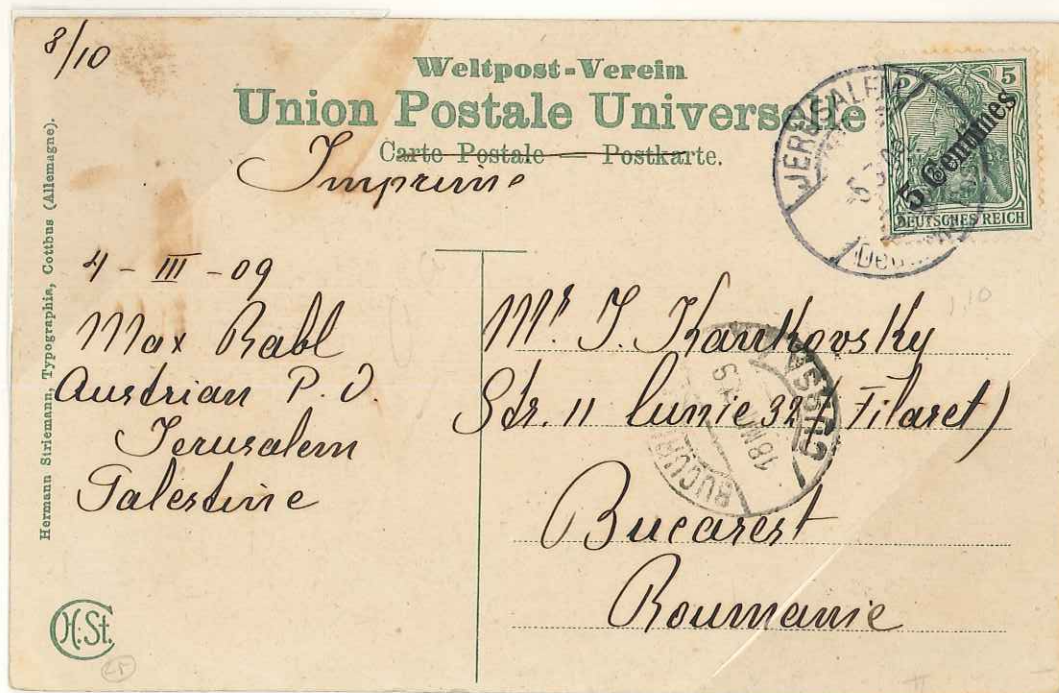 8/10
Weltpost-Verein
Union Postale Universelle
Carte Postale — Postkarte.
Imprimé
5
5 Centimes
DEUTSCHES REICH
JERUSALEM
Hermann Striemann, Typographia, Cottbus (Allemagne).
4 - III - 09
Max Rabl
Austrian P. O.
Jerusalem
Palestine
Mr J. Kankovsky
Str. 11 Iunie 32 (Filaret)
Bucarest
Roumanie
18 M
H.St.
1,10
25